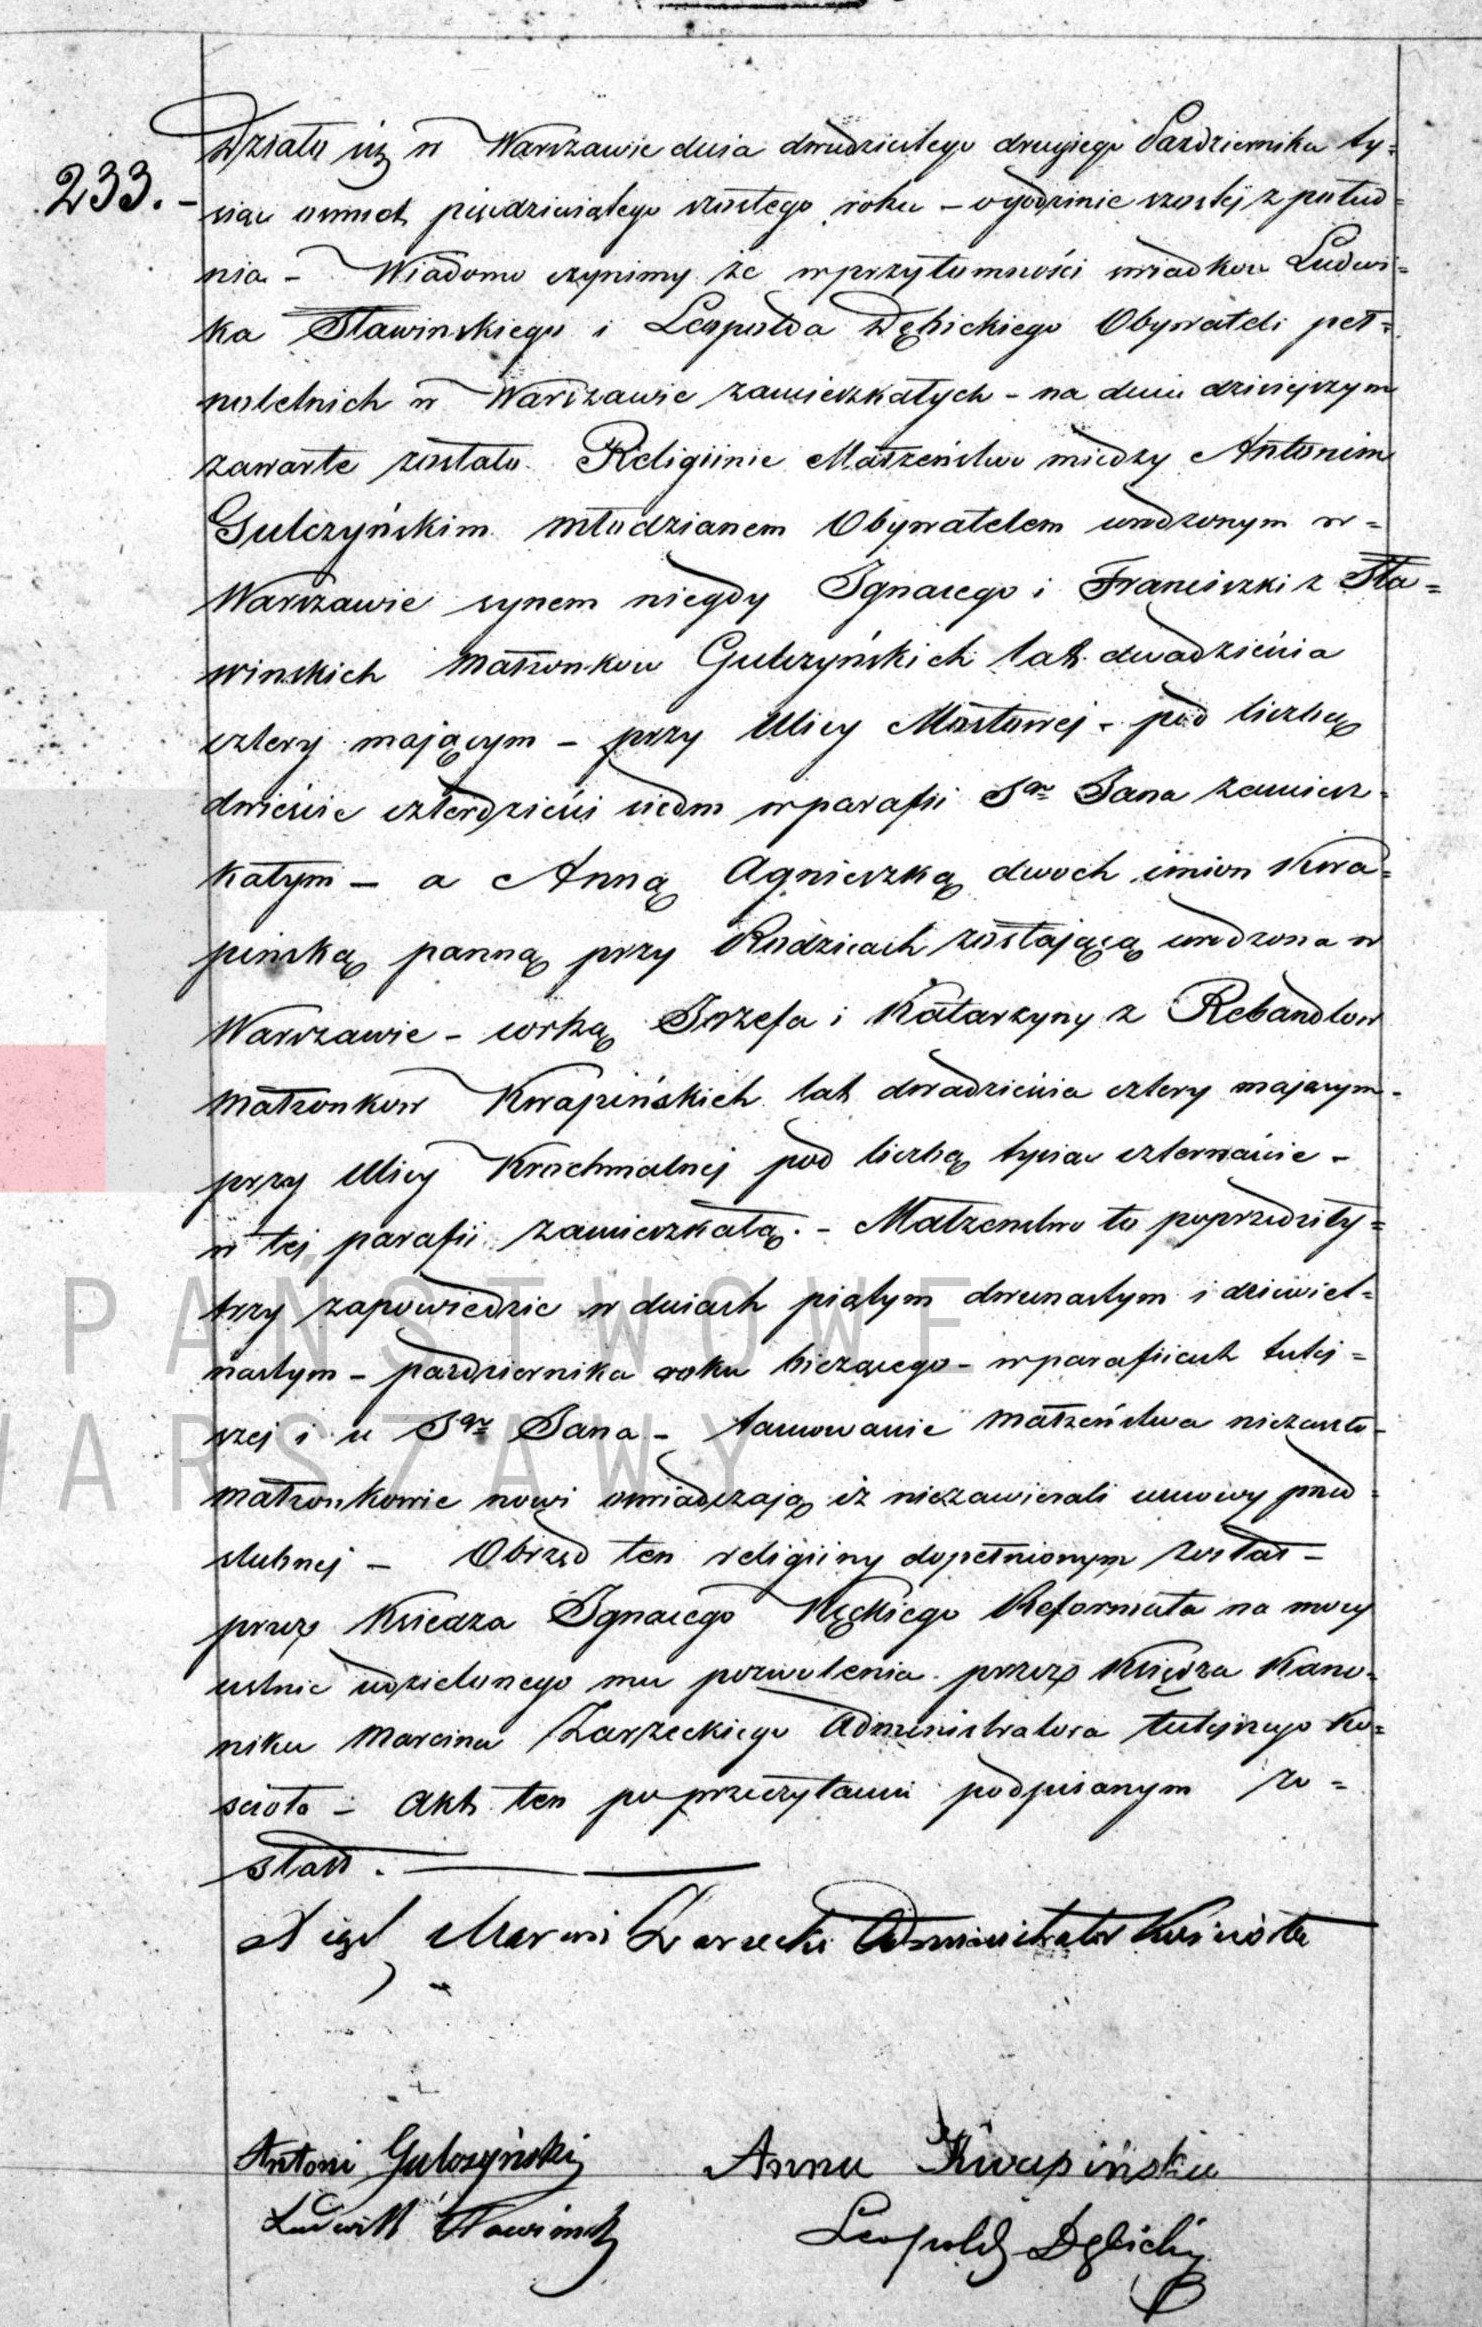 233. -
Działo się w Warszawie dnia dwudziestego drugiego Pazdziernika ty=
siąc osmset pięcdziesiątego szostego roku - o godzinie szostej z połud=
nia - Wiadomo czynimy że w przytomności swiadkow Ludwi=
ka Sławinskiego i Leopolda Dębickiego Obywateli peł=
noletnich w Warszawie zamieszkałych - na dniu dzisiejszym
zawarte zostało Religiinie Małżeństwo między Antonim
Gulczyńskim młodzianem Obywatelem urodzonym w=
Warszawie synem niegdy Ignacego i Franciszki z Sła=
winskich Małżonkow Gulczyńskich lat dwadzieścia
cztery mającym - przy Ulicy Mostowej - pod liczbą
dwieście czterdzieści siedm w parafii Sgo Jana zamiesz=
kałym - a Anną Agnieszką dwoch imion Kwa=
pińską panną przy Rodzicach zostającą urodzona w
Warszawie - corką Jozefa i Katarzyny z Rebandlow
Małżonkow Kwapińskich lat dwadzieścia cztery mającym -
przy Ulicy Krochmalnej pod liczbą tysiac czternaście -
w tej parafii zamieszkałą. - Małżenstwo to poprzedziły=
trzy zapowiedzie w dniach piątym dwunastym i dziewięt=
nastym - pazdziernika roku bieżącego - w parafiiach tutej=
szej i u Sgo Jana - tamowanie Małżeństwa niezaszło -
Małżonkowie nowi oswiadczają iż niezawierali umowy przed=
slubnej - Obrzęd ten religiiny dopełnionym został -
przez Księdza Ignacego Kęckiego Reformata na mocy
ustnie udzielonego mu pozwolenia przez Księdza Kano=
nika Marcina Zarzeckiego Administratora tutejszego Ko=
scioła - Akt ten po przeczytaniu podpisanym zo=
stał. -
X Marcin Zarzecki Administrator Kościoła
Antoni Gulczyński Anna Kwapińska
Ludwik Sławinski Leopold Dębicki
PAŃSTWOWE
WARSZAWY